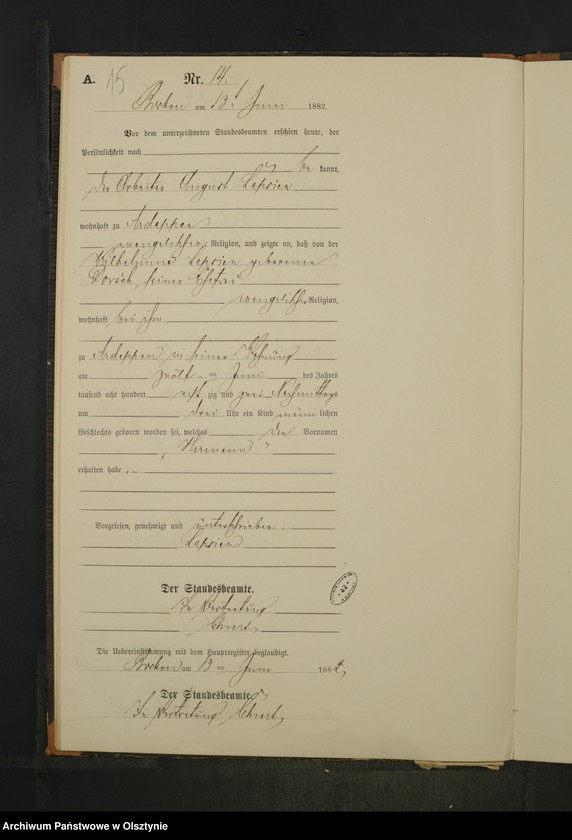 A. 15 Nr. 14.
Borken am 13. Juni 1882.
Vor dem unterzeichneten Standesbeamten erschien heute, der
Persönlichkeit nach
be kannt,
der Arbeiter August Laprien
wohnhaft zu Ardappen
evangelischer Religion, und zeigte an, daß von der
Wilhelmine Laprien geborenen
seiner Ehefrau
evangelischer Religion,
wohnhaft bei ihm
zu Ardappen in seiner Wohnung
am zwölf ten Juni des Jahres
tausend acht hundert acht zig und zwei Nachmittags
um drei Uhr ein Kind männ lichen
Geschlechts geboren worden sei, welches den Vornamen
„Hermann"
erhalten habe.
Vorgelesen, genehmigt und unterschrieben.
Laprien
Der Standesbeamte.
In Vertretung
42
Die Uebereinstimmung mit dem Hauptregister beglaubigt.
Borken am 13 ten Juni 1882
Der Standesbeamte
In Vertretung
Archiwum Państwowe w Olsztynie